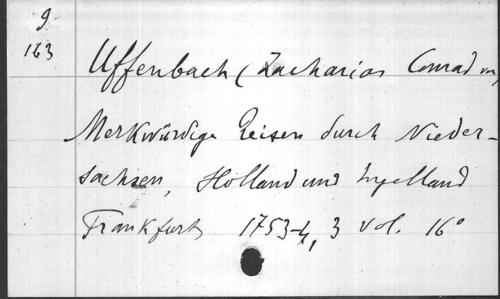 9.
163
Uffenbach (Zacharias Conrad von)
Merkwürdige Reisen durch Nieder-
sachsen, Holland und Engelland
Frankfurt 1753-4, 3 vol. 16°